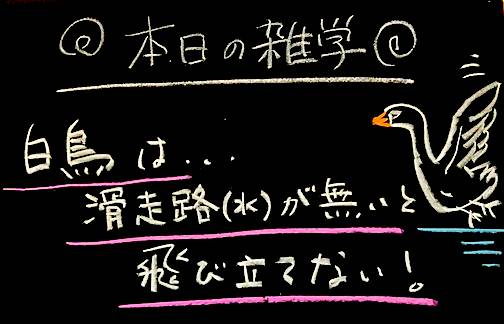 本日の雑学
白鳥は...
滑走路(水)が無いと
飛び立てない!